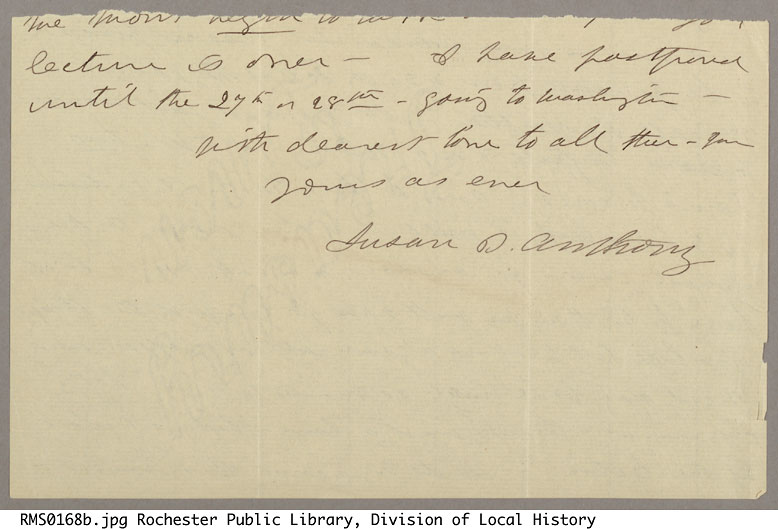 lecture is over — I have postponed
until the 27th or 28th — going to Washington —
with dearest love to all three —
yours as ever
Susan B. Anthony
RMS0168b.jpg Rochester Public Library, Division of Local History